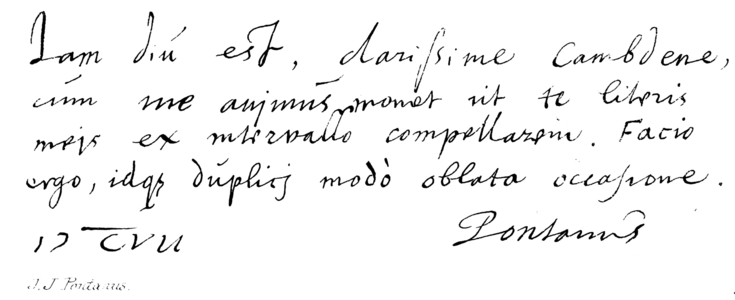 Iam diú est, clarissime Cambdene,
cúm me animus monet ut te literis
meis ex intervallo compellarem. Facio
ergo, idq; duplici modò oblata occasione.
Pontanus
J. J. Pontanus.